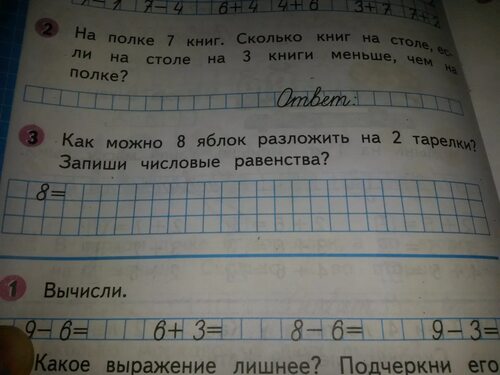 7−7 7−4 6+4 4+6 3+7 7+2
2 На полке 7 книг. Сколько книг на столе, ес-
ли на столе на 3 книги меньше, чем на
полке?
Ответ:
3 Как можно 8 яблок разложить на 2 тарелки?
Запиши числовые равенства?
8=
1 Вычисли.
9−6= 6+3= 8−6= 9−3=
Какое выражение лишнее? Подчеркни его